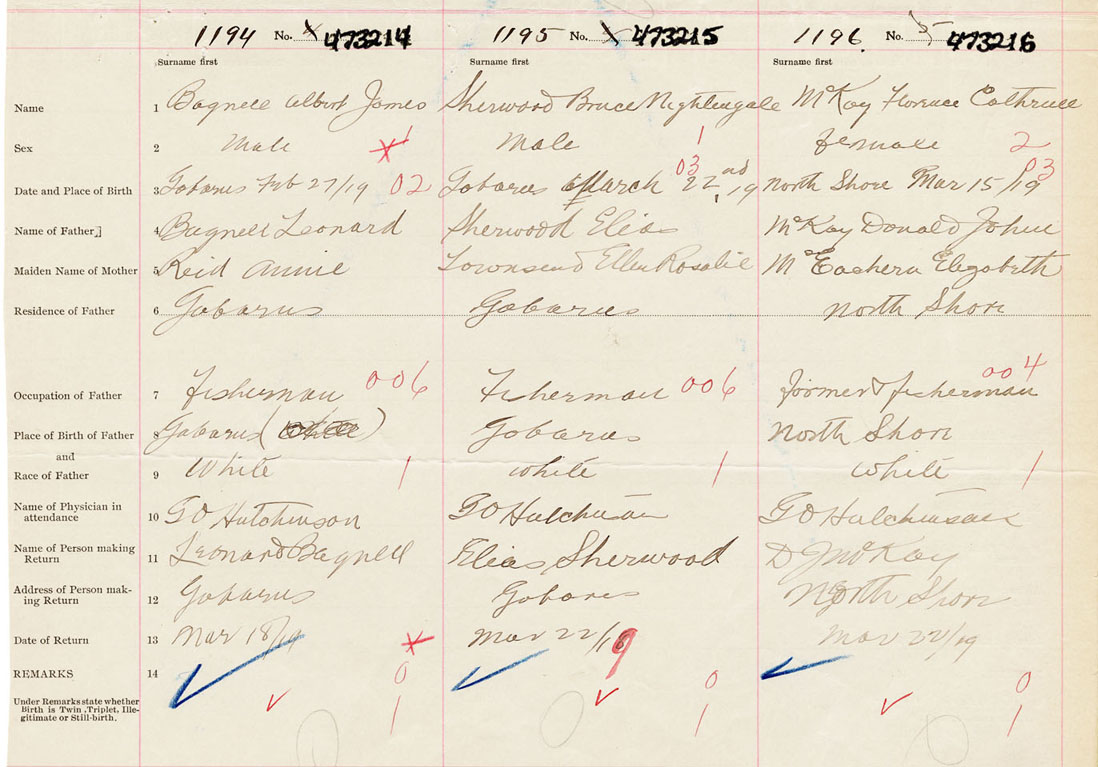 1194 No. 473214 1195 No. 473215 1196 No. 5 473216
Surname first Surname first Surname first
Name 1 Bagnell Albert James Sherwood Bruce Nightengale McKay Florence Cathrine
Sex 2 Male 1 Male 1 female 2
Date and Place of Birth 3 Gabarus Feb 27/19 02 Gabarus March 22nd, 19 03 North Shore Mar 15/19 03
Name of Father 4 Bagnell Leonard Sherwood Elias McKay Donald John
Maiden Name of Mother 5 Reid Annie Townsend Ellen Rosalie McEachern Elizabeth
Residence of Father 6 Gabarus Gabarus North Shore
Occupation of Father 7 fisherman 006 Fisherman 006 farmer & fisherman 004
Place of Birth of Father 8 Gabarus (White) Gabarus North Shore
and
Race of Father 9 White 1 white 1 white 1
Name of Physician in
attendance 10 GO Hutchinson GO Hutchinson GO Hutchinson
Name of Person making
Return 11 Leonard Bagnell Elias Sherwood D J McKay
Address of Person mak-
ing Return 12 Gabarus Gabarus North Shore
Date of Return 13 Mar 18/19 Mar 22/19 Mar 22/19
REMARKS 14 0 0 0
Under Remarks state whether
Birth is Twin, Triplet, Ille-
gitimate or Still-birth. 1 1 1